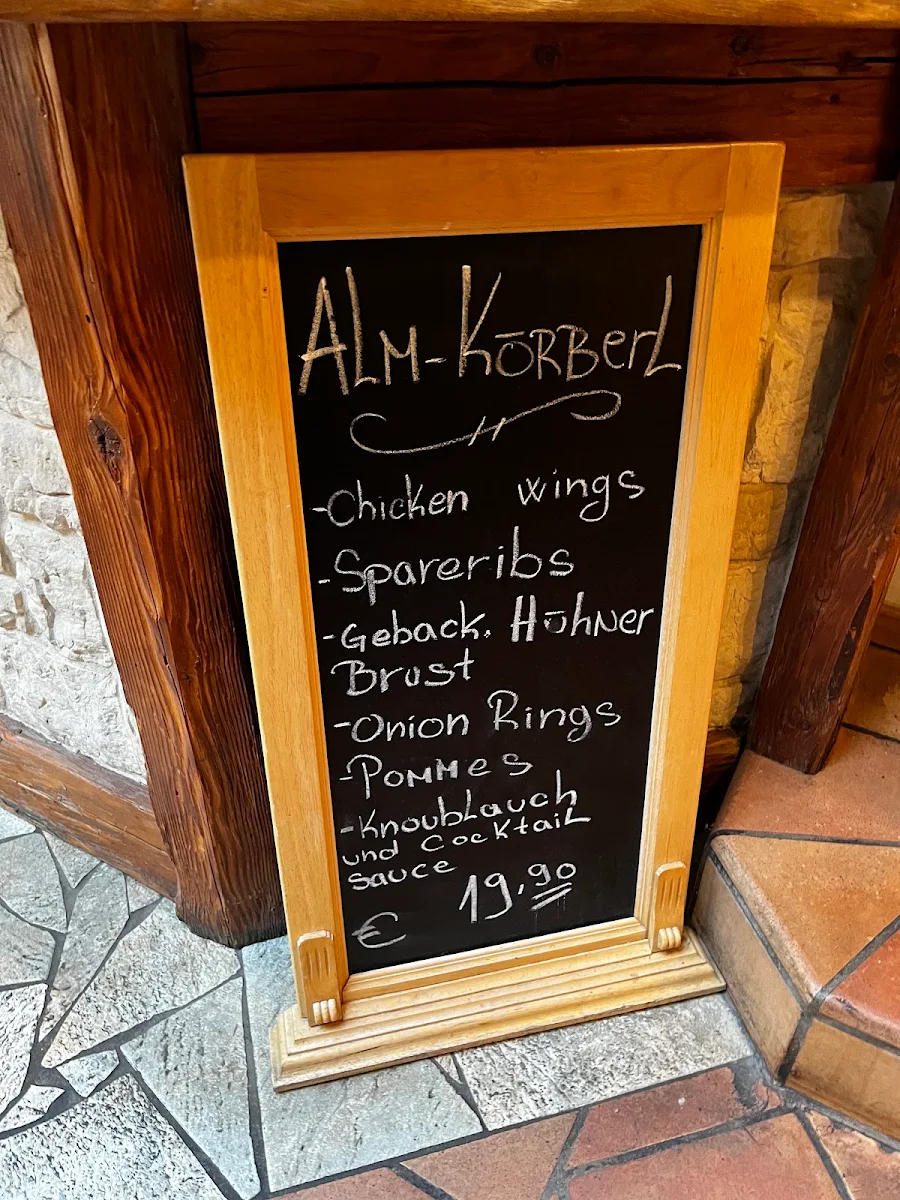 ALM-KÖRBERL
-Chicken wings
-Spareribs
-Geback. Hühner
Brust
-Onion Rings
-Pommes
-Knoublauch
und Cocktail
sauce
€ 19,90